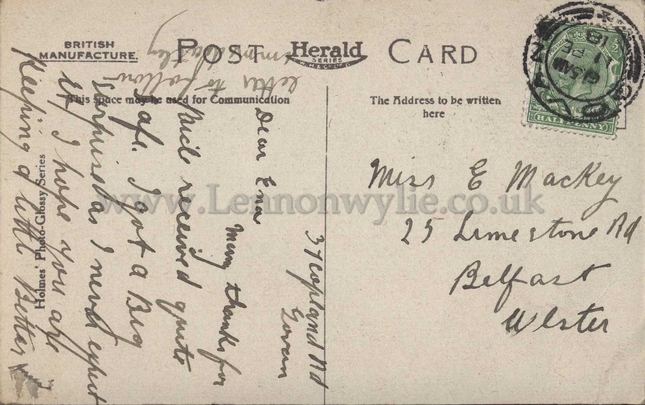 BRITISH
MANUFACTURE.
POST Herald CARD
SERIES
This space may be used for Communication
The Address to be written
here
Miss E Mackey
25 Limestone Rd
Belfast
Ulster
HALFPENNY
37 Copland Rd
Govan
Dear Ena
Many thanks for
received quite
safe. I got a Big
surprise as I never expect
it I hope you are
Keeping a little Better
letter to follow
Holmes' Photo-Glossy Series
www.Lennonwylie.co.uk